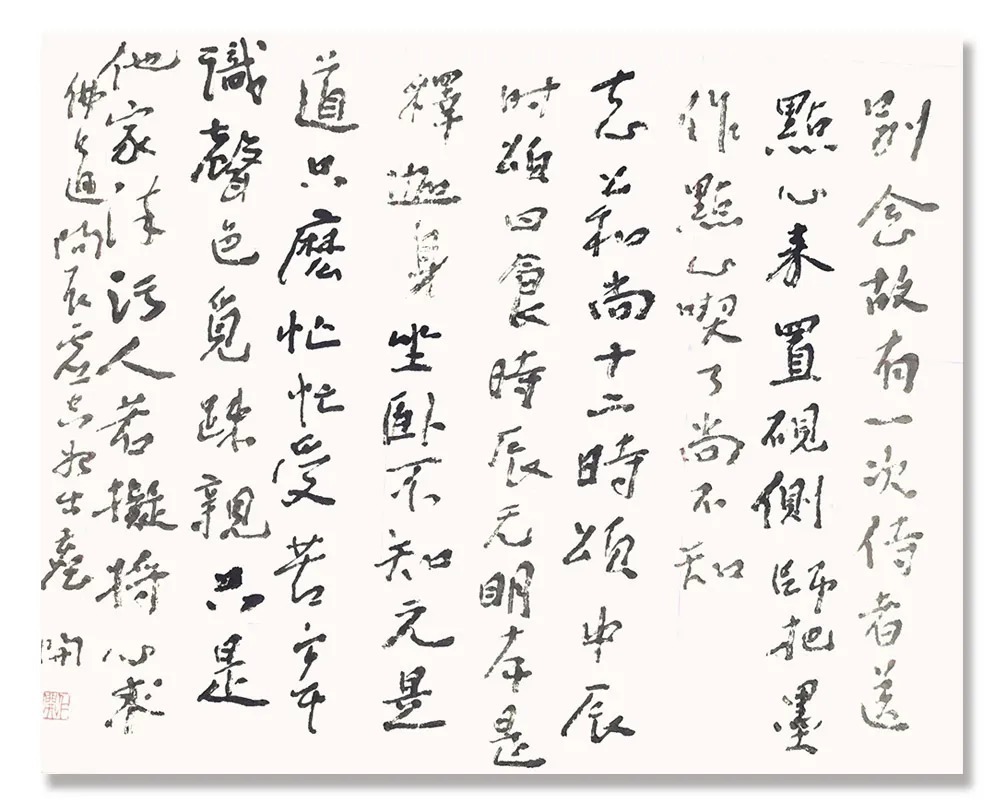 别念故有一次侍者送
點心来置硯側師把墨
作點心喫了尚不知
志公和尚十二時頌中辰
时頌曰食時辰无明本是
釋迦身坐卧不知元是
道只麽忙忙受苦辛
識聲色覓疎親只是
他家染污人若擬将心求
佛道問取虚空始出塵 開